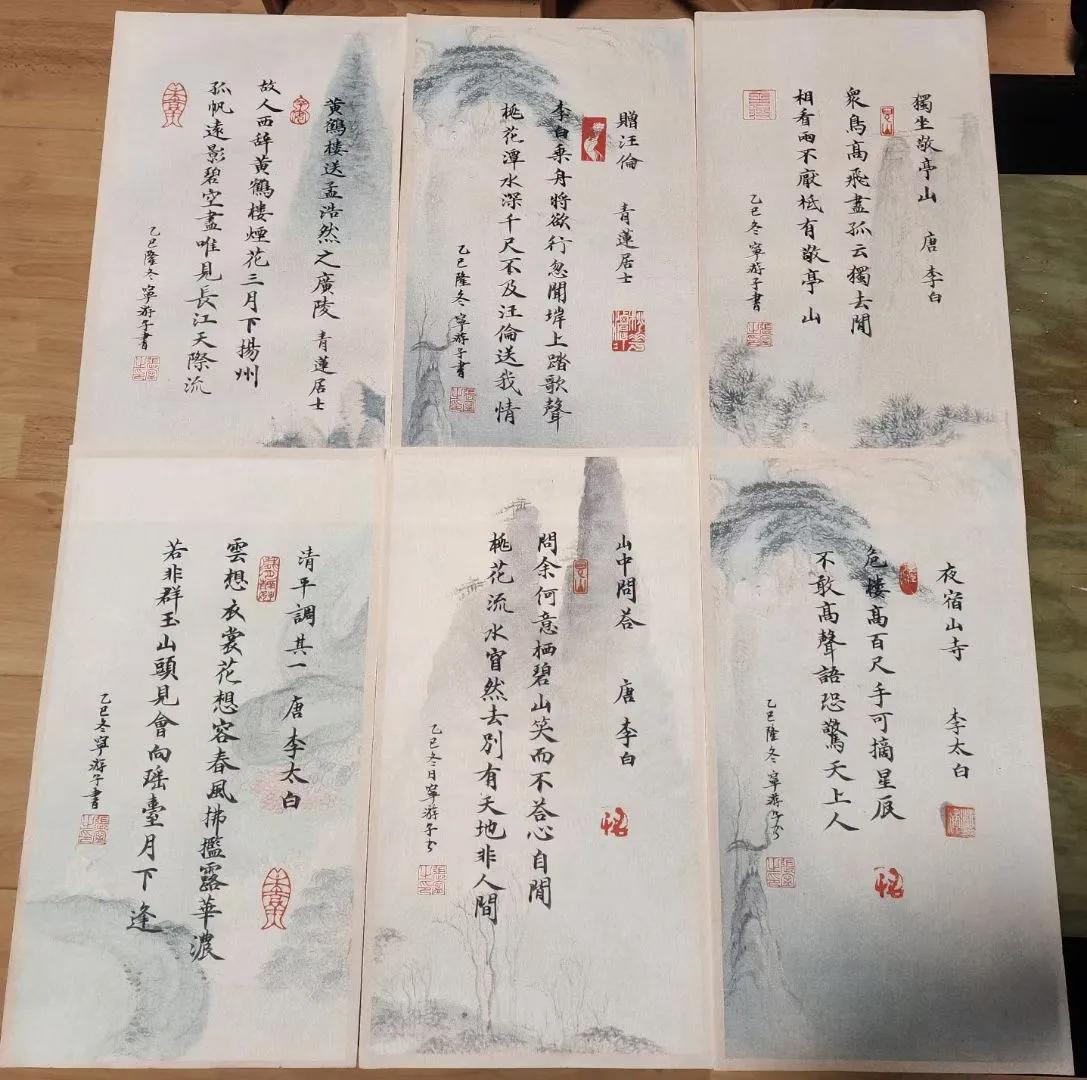 獨坐敬亭山 唐 李白
衆鳥高飛盡孤云獨去閒
相看兩不厭柢有敬亭山
乙巳冬寧游子書
贈汪倫 青蓮居士
李白乘舟將欲行忽聞堓上踏歌聲
桃花潭水深千尺不及汪倫送我情
乙巳隆冬寧游子書
黃鶴樓送孟浩然之廣陵 青蓮居士
故人西辞黃鶴樓煙花三月下揚州
孤帆遠影碧空盡唯見長江天際流
乙巳隆冬寧游子書
夜宿山寺 李太白
危楼高百尺手可摘星辰
不敢高聲語恐驚天上人
乙巳隆冬寧游子书
山中問荅 唐 李白
問余何意栖碧山笑而不荅心自閒
桃花流水窅然去别有天地非人間
乙巳冬日寧游子书
清平調其一 唐 李太白
雲想衣裳花想容春風拂檻露華濃
若非群玉山頭見會向瑶臺月下逢
乙巳冬寧游子書